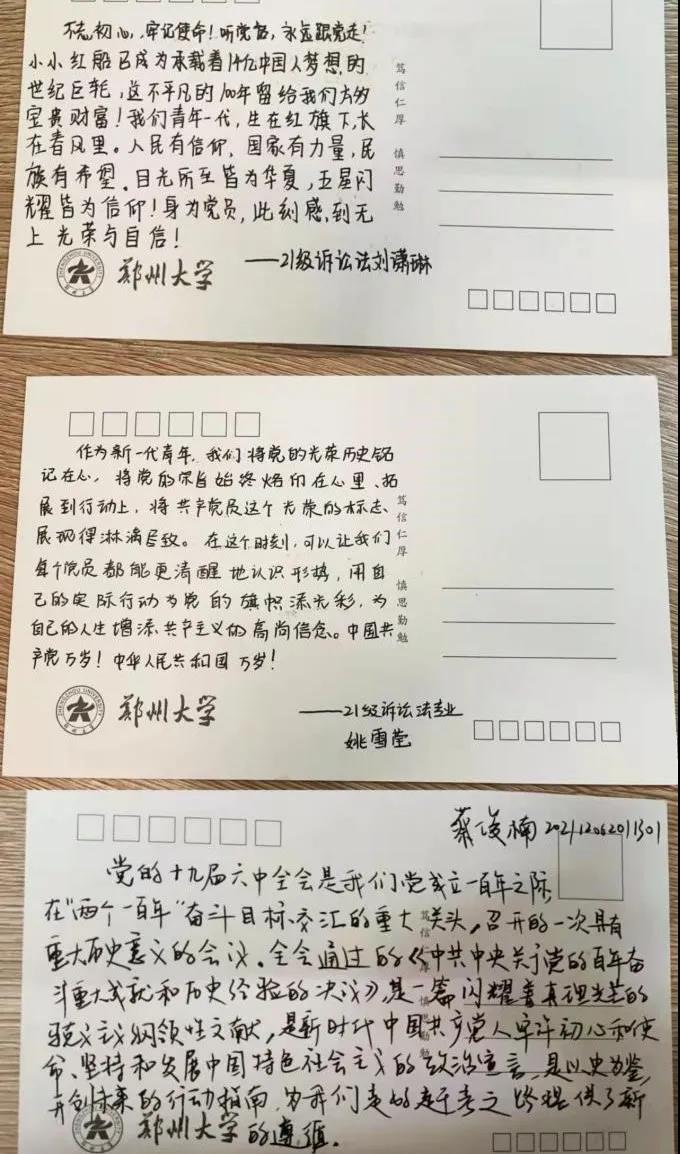 不忘初心,牢记使命!听党话,永远跟党走!
小小红船已成为承载着14亿中国人梦想的
世纪巨轮,这不平凡的100年留给我们
宝贵财富!我们青年一代,生在红旗下,长
在春风里。人民有信仰,国家有力量,民
族有希望.目光所至皆为华夏,五星闪
耀皆为信仰!身为党员,此刻感到无
上光荣与自信!
——21级诉讼法刘潇琳
郑州大学
ZHENGZHOU UNIVERSITY
笃信仁厚 慎思勤勉
作为新一代青年,我们将党的光荣历史铭
记在心,将党的宗旨始终烙印在心里、拓
展到行动上,将共产党员这个光荣的标志、
展现得淋漓尽致。在这个时刻,可以让我们
每个党员都能更清醒地认识形势,用自
己的实际行动为党的旗帜添光彩,为
自己的人生增添共产主义的高尚信念。中国共
产党万岁!中华人民共和国万岁!
——21级诉讼法专业
姚雪莹
郑州大学
ZHENGZHOU UNIVERSITY
笃信仁厚 慎思勤勉
蔡俊楠
党的十九届六中全会是我们党成立一百年之际,
在“两个一百年”奋斗目标交汇的重大关头,召开的一次具有
重大历史意义的会议。全会通过的《中共中央关于党的百年奋
斗重大成就和历史经验的决议》,是一篇闪耀着真理光芒的
马克思主义纲领性文献,是新时代中国共产党人牢记初心和使
命、坚持和发展中国特色社会主义的政治宣言,是以史为鉴,
开创未来的行动指南,为我们走好赶考之路提供了新
的遵循.
郑州大学